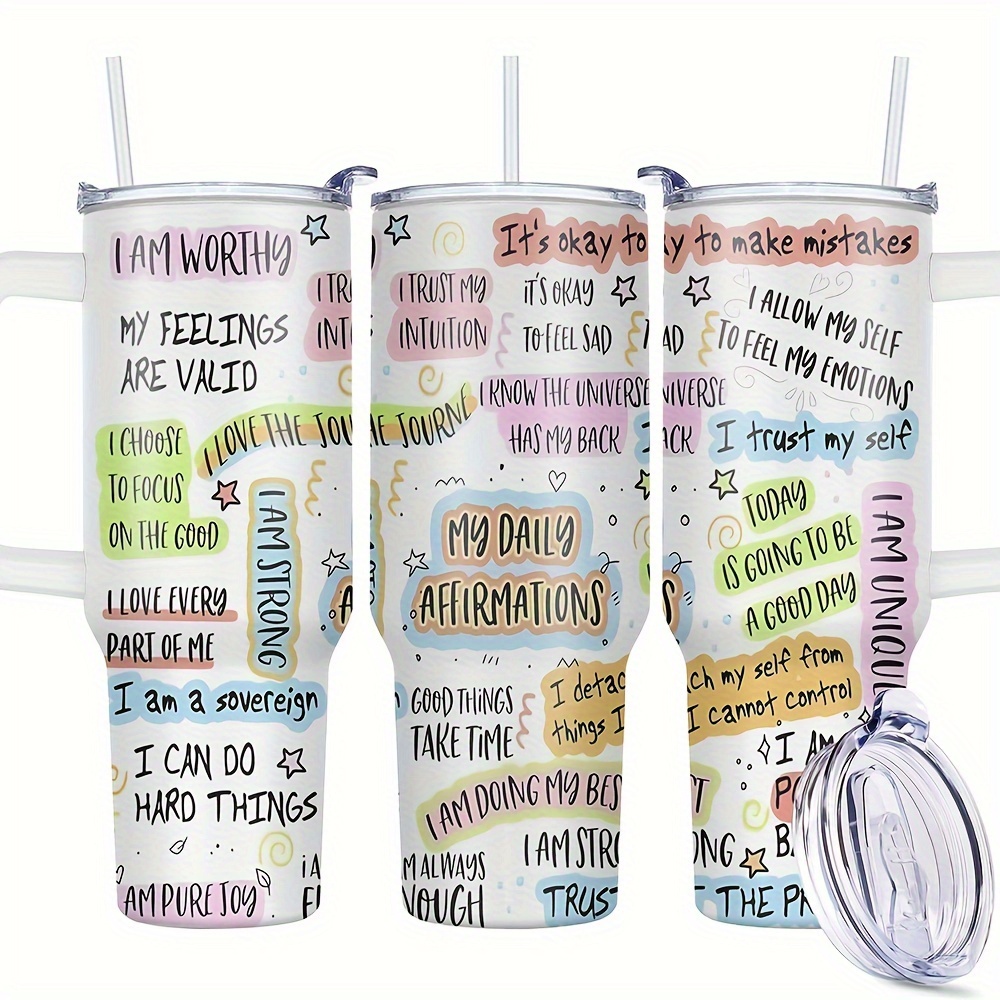 I AM WORTHY
MY FEELINGS
ARE VALID
I CHOOSE
TO FOCUS
ON THE GOOD
I LOVE THE
I AM STRONG
I LOVE EVERY
PART OF ME
I am a sovereign
I CAN DO
HARD THINGS
AM PURE JOY
I TRUST MY
INTUITION
It's okay to
IT'S OKAY
TO FEEL SAD
I KNOW THE UNIVERSE
HAS MY BACK
MY DAILY
AFFIRMATIONS
GOOD THINGS
TAKE TIME
I
things I
I AM DOING MY
ALWAYS
I AM
TRUST
to make mistakes
I ALLOW MY SELF
TO FEEL MY EMOTIONS
I trust my self
TODAY
IS GOING TO BE
A GOOD DAY
I AM
my self from
I cannot control
I
THE